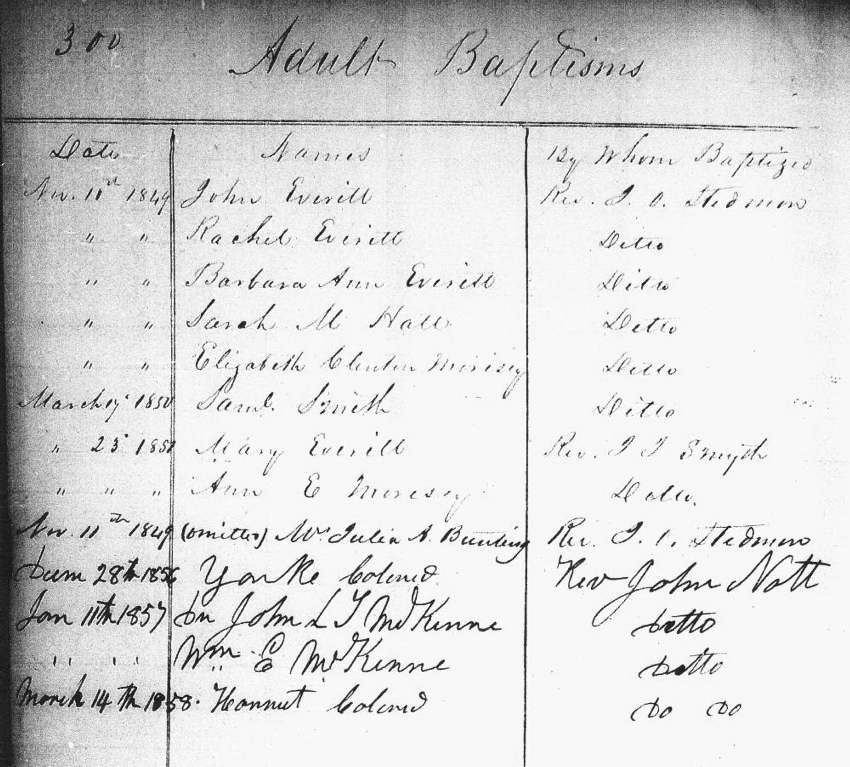 300
Adult Baptisms
Date Names By Whom Baptized
Nov. 11th 1849 John Everitt Rev. J. O. Stedman
" " Rachel Everitt Ditto
" " Barbara Ann Everitt Ditto
" " Sarah M Hall Ditto
" " Elizabeth Clinton Morisey Ditto
March 1850 Saml. Smith Ditto
" 23 1851 Mary Everitt Rev. J J Smyth
" " " Ann E Morisey Ditto.
Nov. 11th 1849 (omitted) Mrs Julia A. Bunting Rev. J. O. Stedman
28th 1856 Yorke Colored Rev John Nott
Jan 11th 1857 Dr John L T McKenne Detto
" " Wm E McKenne Detto
March 14th 1858. Colored Do Do